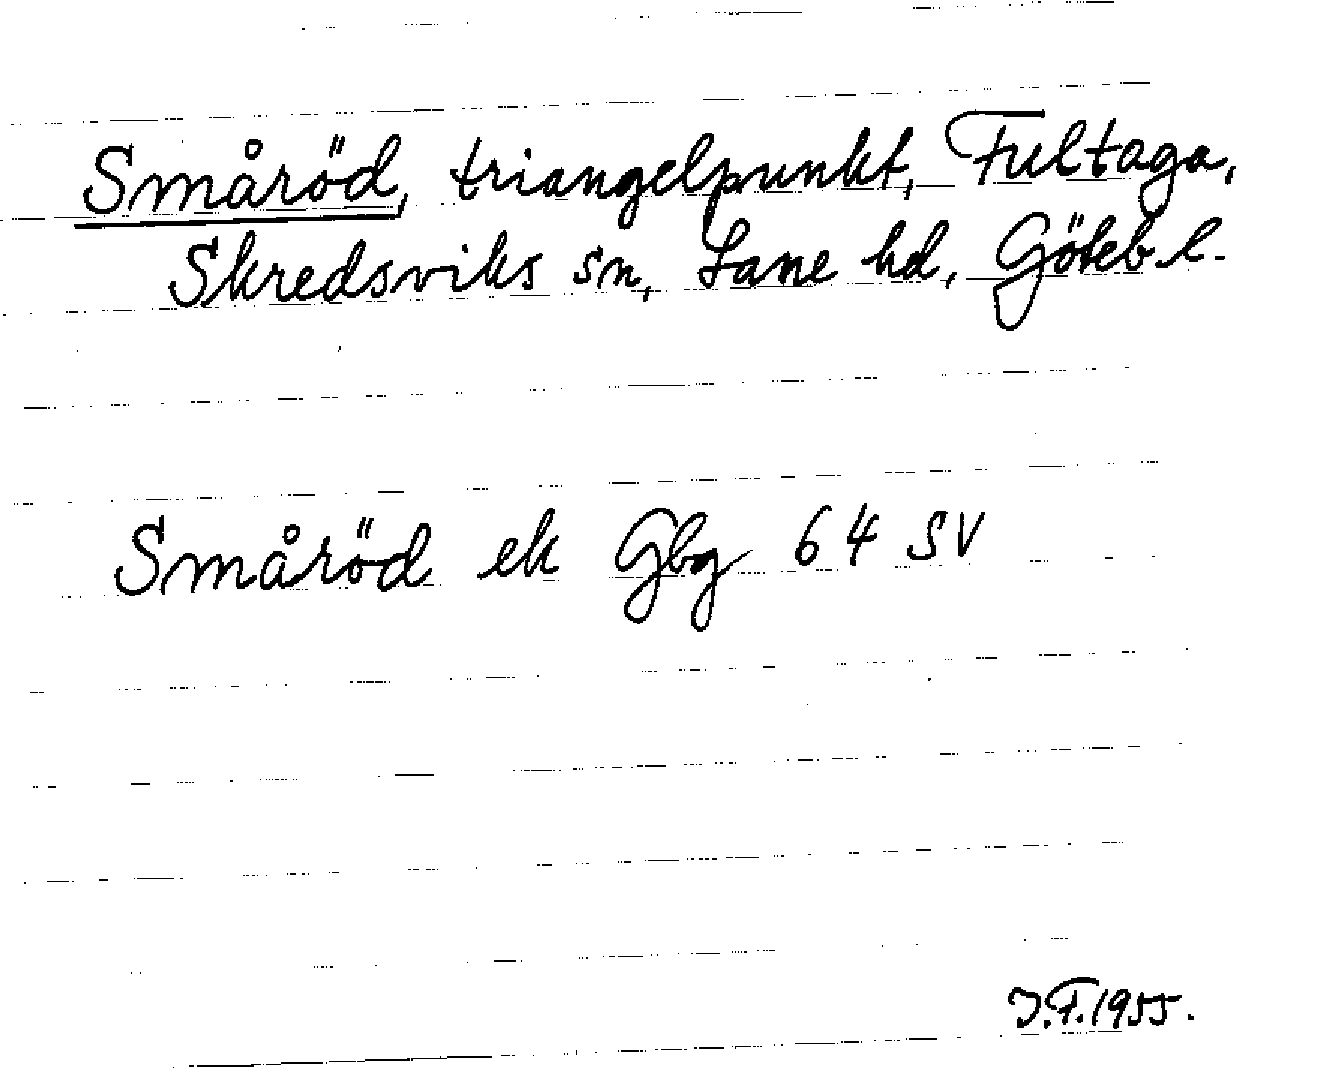 Småröd, triangelpunkt, Fultaga,
Skredsviks sn, Lane hd, Göteb l.
Småröd ek Gbg 64 SV
J.F.1955.